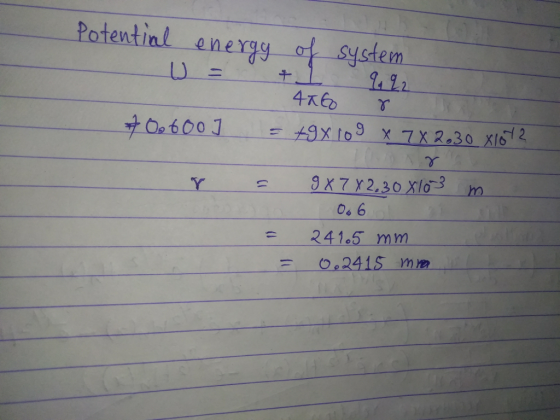 Potential energy of system
U = + 1/4πε0 q1q2/r
+0.600J = +9×10^9 × 7×2.30×10^-12/r
r = 9×7×2.30×10^-3/0.6 m
= 241.5 mm
= 0.2415 m